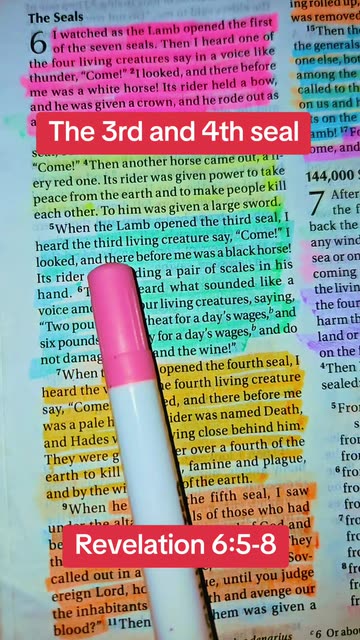 The Seals
6 I watched as the Lamb opened the first
of the seven seals. Then I heard one of
the four living creatures say in a voice like
thunder, "Come!" 2I looked, and there before
me was a white horse! Its rider held a bow,
and he was given a crown, and he rode out as
The 3rd and 4th seal
"Come!" 4Then another horse came out, a fi-
ery red one. Its rider was given power to take
peace from the earth and to make people kill
each other. To him was given a large sword.
5When the Lamb opened the third seal, I
heard the third living creature say, "Come!" I
looked, and there before me was a black horse!
Its rider a pair of scales in his
hand. what sounded like a
voice living creatures, saying,
"Two for a day's wages,b and
six pounds for a day's wages,b and do
not and the wine!"
7When opened the fourth seal, I
heard the fourth living creature
say, and there before me
was a pale was named Death,
and Hades close behind him.
They were over a fourth of the
earth to kill famine and plague,
and by the of the earth.
9When he the fifth seal, I saw
of those who had
Revelation 6:5-8
called out in a
ereign Lord, until you judge
the inhabitants and avenge our
blood?" 11Then was given a
ing rolled up,
was removed
15Then
the general
one else, bo
among the
called to th
on us and
144,000
7 After
the
back the
any win
sea or on
coming
the livin
the four
harm th
land or
on the f
4Then
sealed
5From
6 Or